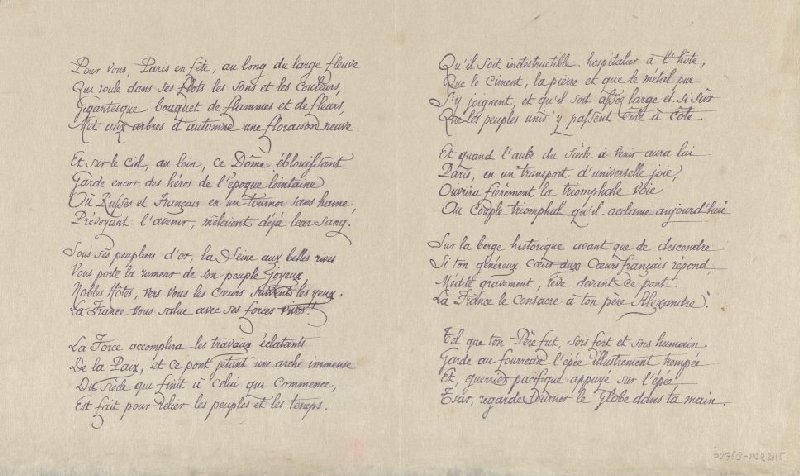 Pour vous, Paris en fête, au long du large fleuve
Qui roule dans ses flots les sons et les couleurs,
Gigantesque bouquet de flammes et de fleurs,
Met aux arbres d'automne une floraison neuve
Et sur le Ciel, au loin, ce Dôme éblouissant
Garde encor des héros de l'époque lointaine
Où Russes et Français en un tournoi sans haine
Prévoyant l'avenir, mêlaient déjà leur sang.
Sous ses peupliers d'or, la Seine aux belles rives
Vous porte la rumeur de son peuple joyeux,
Nobles Hôtes, vers vous les Cœurs suivent les yeux.
La France vous salue avec ses forces vives!
La Force accomplira les travaux éclatants
De la Paix, et ce pont jetant une arche immense
Du siècle qui finit à Celui qui Commence,
Est fait pour relier les peuples et les temps.
Qu'il soit indestructible, hospitalier à l'hôte,
Que le ciment, la pierre et que le métal pur
S'y joignent, et qu'il soit assez large et si sûr
Que les peuples unis y passent côte à côte.
Et quand l'aube du siècle à venir aura lui
Paris, en un transport d'universelle joie,
Ouvrira fièrement la triomphale voie
Au Couple triomphal qu'il acclame aujourd'hui
Sur la berge historique avant que de descendre
Si ton généreux Cœur aux Cœurs français répond
Médite gravement, rêve devant ce pont.
La France le Consacre à ton père Alexandre.
Tel que ton Père fut, sois fort et sois humain
Garde au fourreau l'épée illustrement trempée
Et, guerrier pacifique appuyé sur l'épée,
Tsar, regarde tourner le globe dans ta main.